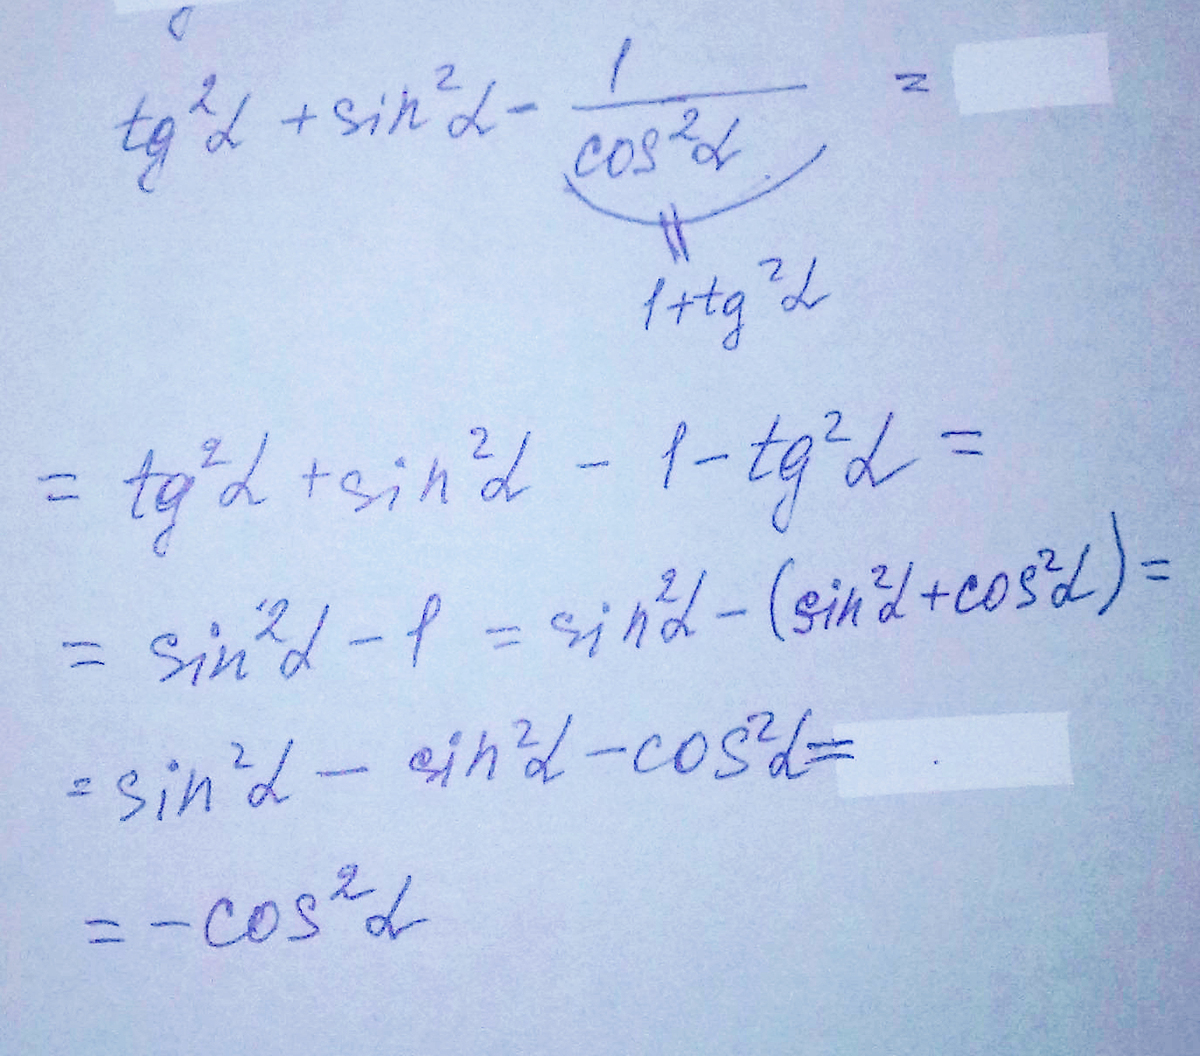 tg²α + sin²α - 1/cos²α =
1+tg²α
= tg²α + sin²α - 1 - tg²α =
= sin²α - 1 = sin²α - (sin²α + cos²α) =
= sin²α - sin²α - cos²α =
= - cos²α